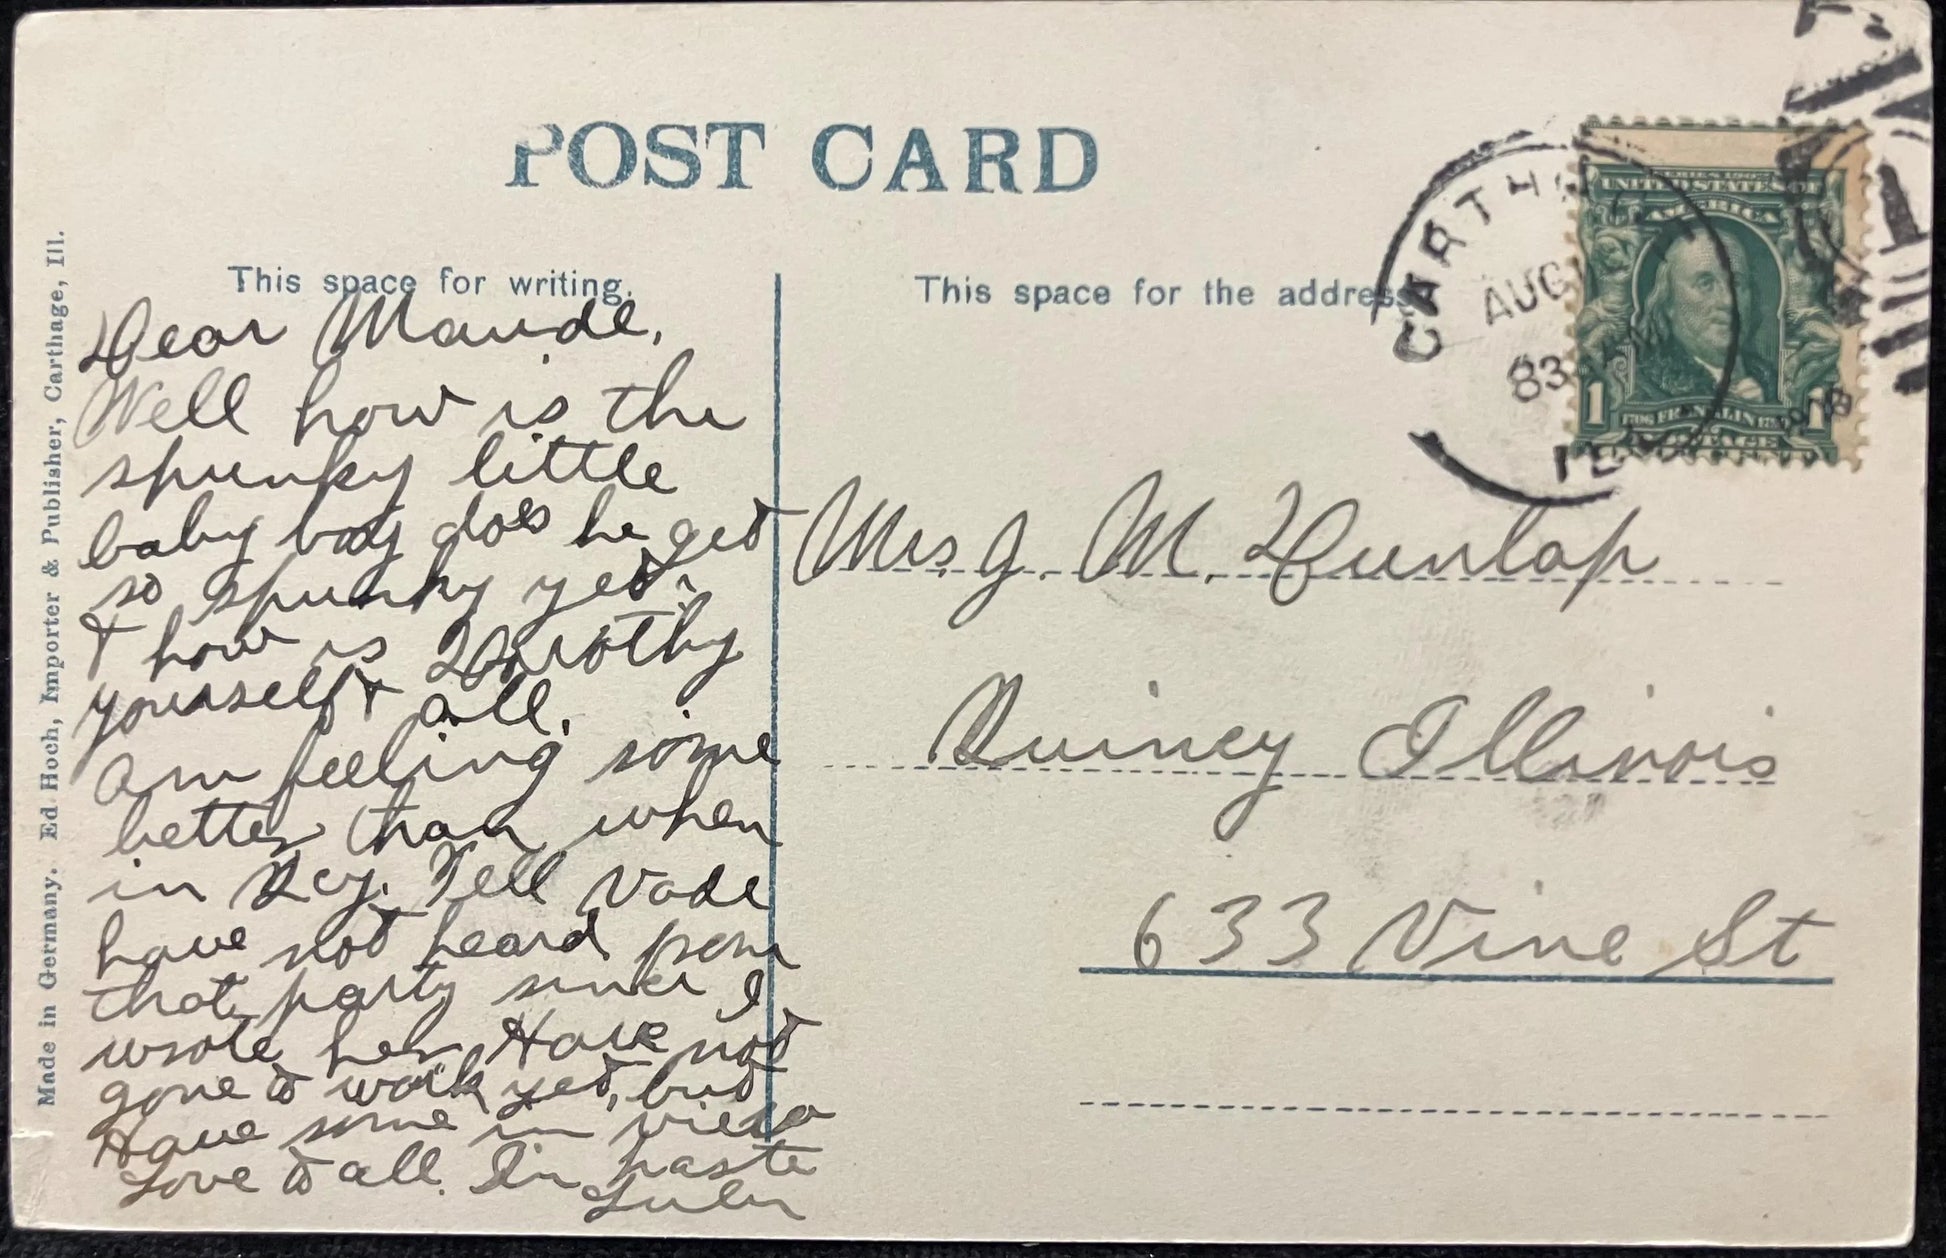 POST CARD
This space for writing.
This space for the address
Made in Germany. Ed Hoch, Importer & Publisher, Carthage, Ill.
Dear Maude,
Well how is the
spunky little
baby boy does he get
so spunky yet?
& how is Dorothy
yourself & all.
Am feeling some
better than when
in Qcy. Tell Vade
have not heard from
that party since I
wrote her. Have not
gone to work yet, but
Have some in view
Love to all. In haste
Lulu
CARTHAGE
AUG
83 AM
1908
ILL
SERIES 1902
UNITED STATES OF
AMERICA
1 1
1706 FRANKLIN 1790
POSTAGE
Mrs. J. M. Dunlap
Quincy Illinois
633 Vine St